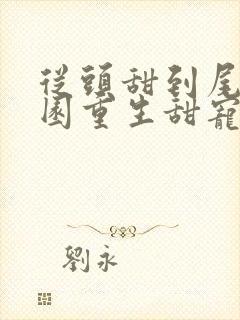 從頭甜到尾
園重生甜寵
劉永